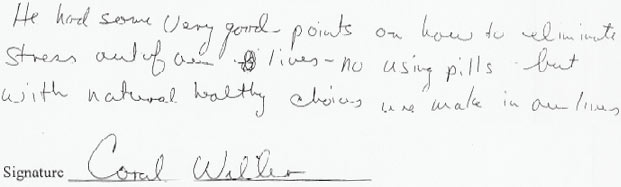 He had some very good - points on how to eliminate
stress out of our lives - no using pills but
with natural healthy choices we make in our lives
Signature Coral